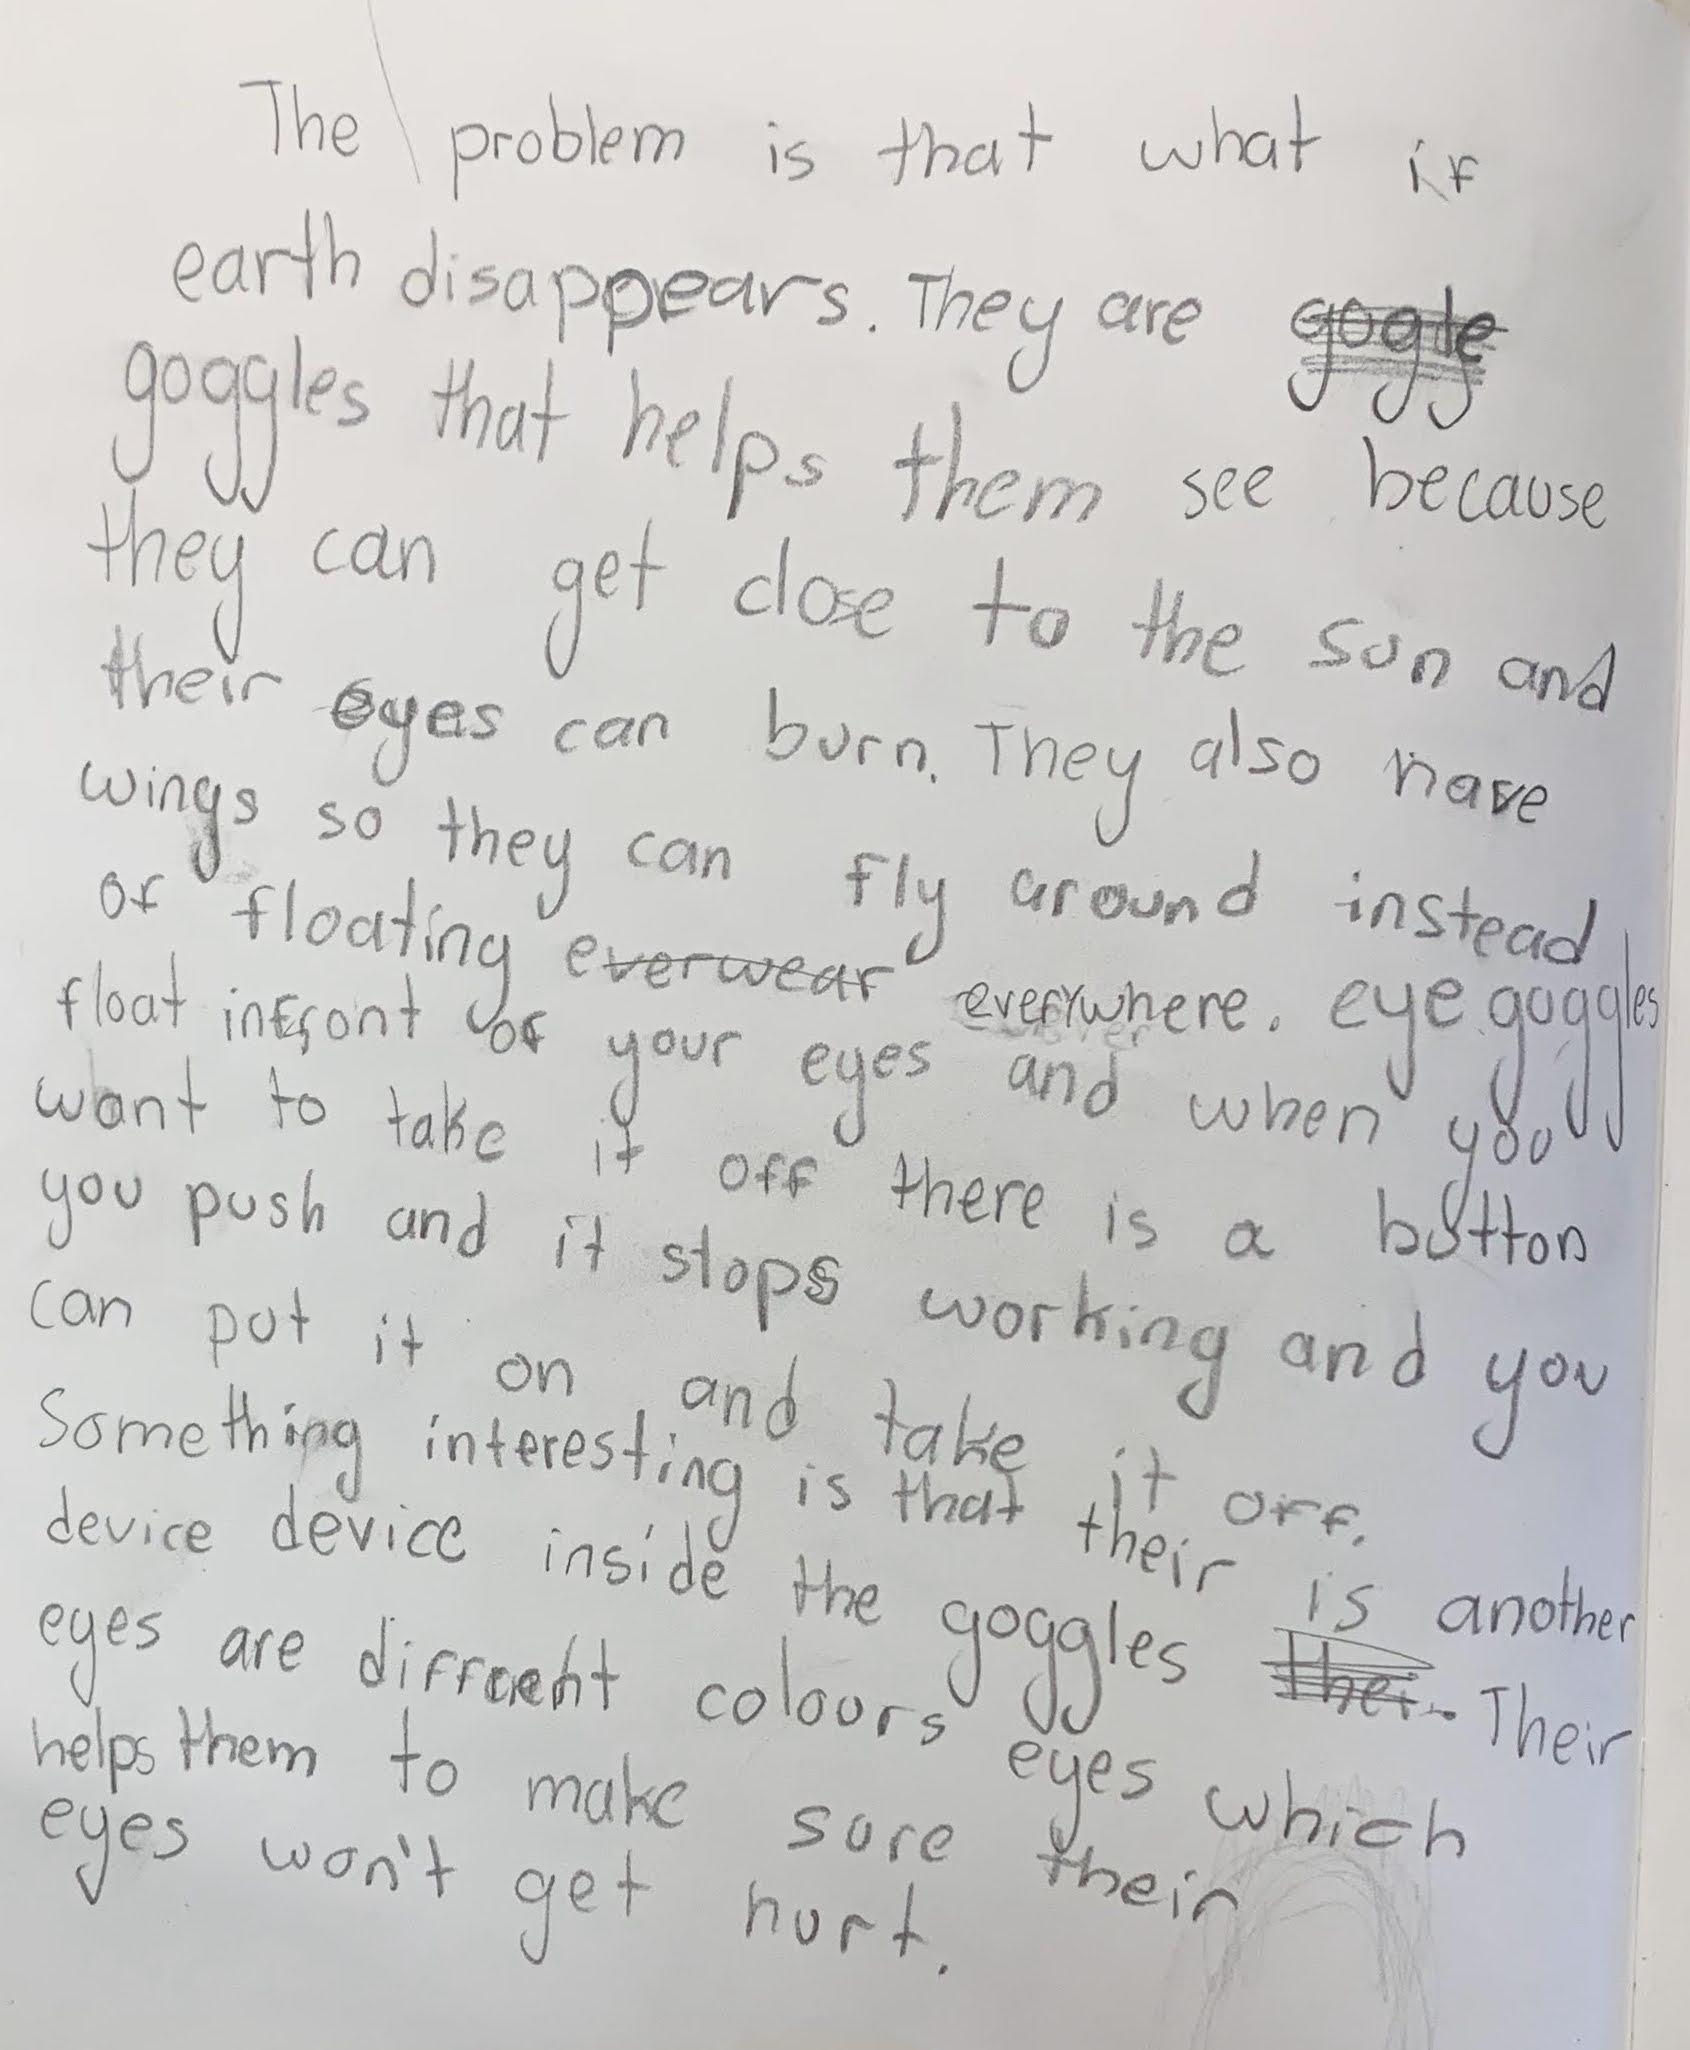 The problem is that what if
earth disappears. They are gogle
goggles that helps them see because
they can get close to the sun and
their eyes can burn. They also have
wings so they can fly around instead
of floating everwear everywhere. eye goggles
float infront of your eyes and when you
want to take it off there is a button
you push and it stops working and you
can put it on and take it off.
Something interesting is that their is another
device device inside the goggles their Their
eyes are diffrent colours eyes which
helps them to make sure their
eyes won't get hurt.